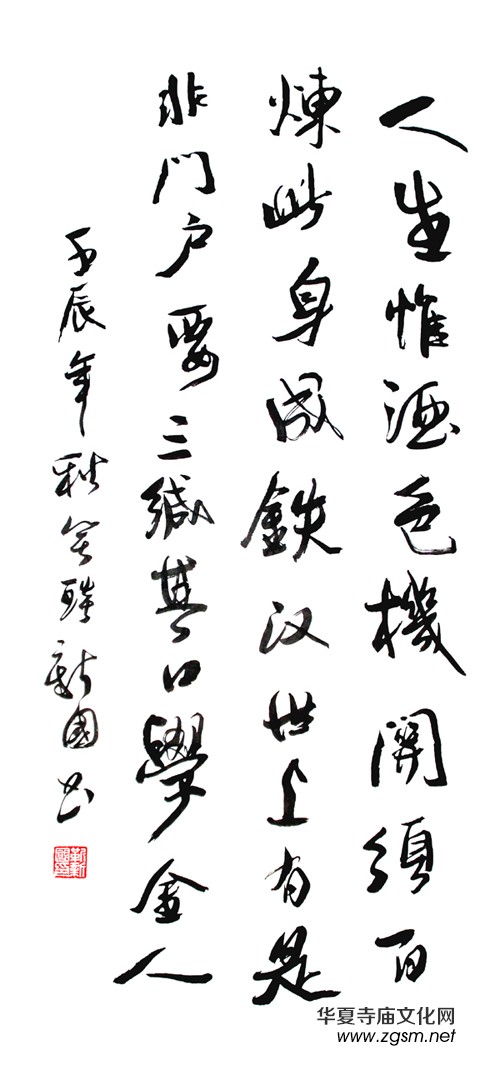 人生惟酒色機關須百
煉此身成鉄汉世上有是
非門户要三緘其口學金人
壬辰年秋 新國书
华夏寺庙文化网
www.zgsm.net